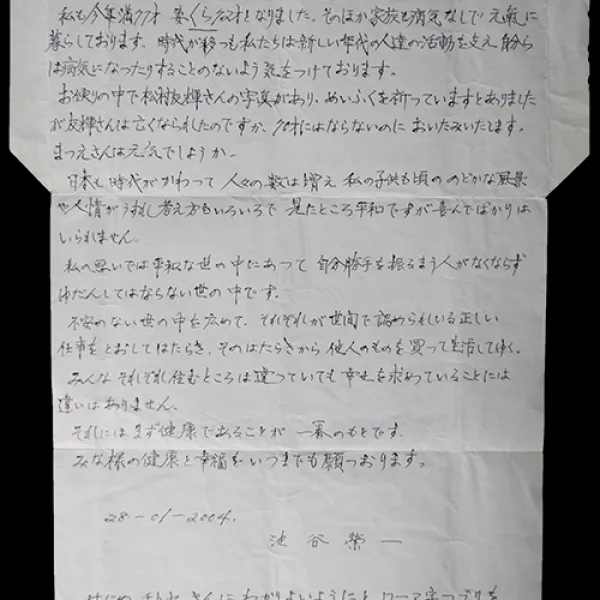 私も今年満77才 妻くら72才となりました。そのほか家族も病気なしで元氣に
暮らしております。時代が移っても私たちは新しい年代の人達の活動を支え自分ら
は病気になったりすることのないよう気をつけております。
お便りの中で松村友輝さんの写真があり、めいふくを祈っていますとありました
が友輝さんは亡くなられたのですか、 才にはならないのに おいたみいたします。
まつえさんは元気でしょうか。
日本も時代がかわって 人々の数は増え 私の子供も頃の のどかな風景
や人情がうすれ考え方もいろいろで 見たところ平和ですが喜んでばかりは
いられません。
私の思いでは平和な世の中にあって 自分勝手を振るまう人がなくならず
ゆだんしてはならない世の中です。
不安のない世の中を広めて、それぞれが世間で認められている正しい
仕事をとおしてはたらき、そのはたらきから他人のものを買って生活してゆく。
みんな それぞれ住むところは違っていても 幸せを求めていることには
違いはありません。
それにはまず健康であることが 一番のもとです。
みな様の健康と幸福をいつまでも願っております。
28-01-2004.
池谷榮一
はじめ さんに わかりよいようにと、ローマ字つづりを